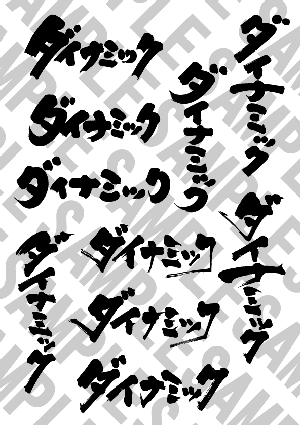 ダイナミック
ダイナミック
ダイナミック
ダイナミック
ダイナミック
ダイナミック
ダイナミック
ダイナミック
ダイナミック
ダイナミック
SAMPLE